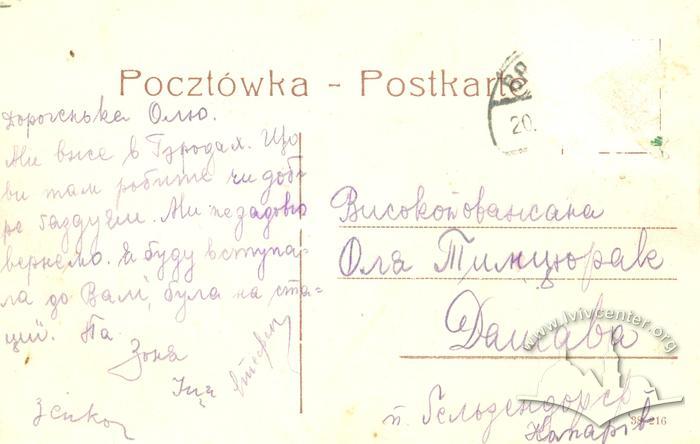 Pocztówka - Postkarte
BR
20.
Дорогенька Олю.
Ми вже в Городах. Що
ви там робите чи доб-
ре газдуєте. Ми незадовго
вернемо. Я буду вступа-
ла до Валі, була на ста-
ції. Па
Зоня
Високоповажана
Оля Тимцюрак
Дашава
п. Гельзендорф
38 216
www.lvivcenter.org